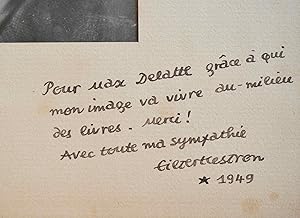 Pour Max Delatte grâce à qui
mon image va vivre au-milieu
des livres. Merci!
Avec toute ma sympathie
* 1949